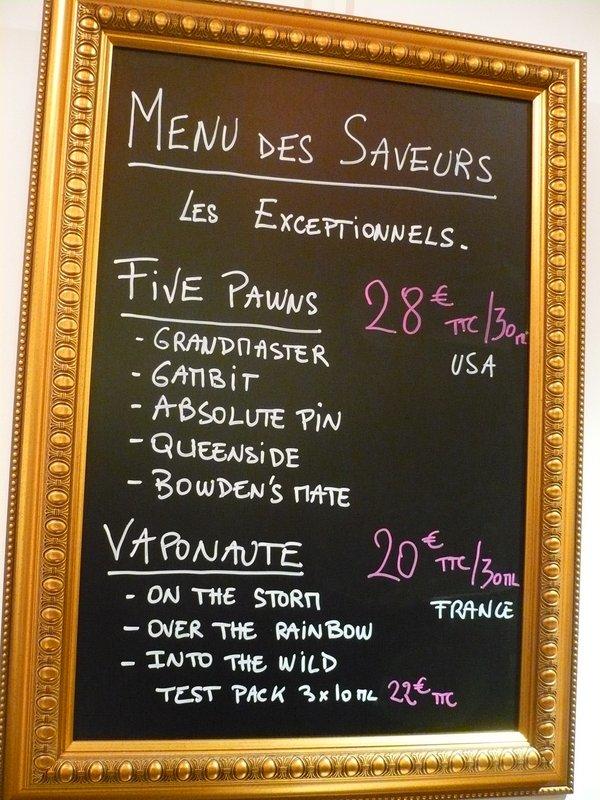 MENU DES SAVEURS
LES EXCEPTIONNELS.
FIVE PAWNS 28€ TTC/30ML
USA
- GRANDMASTER
- GAMBIT
- ABSOLUTE PIN
- QUEENSIDE
- BOWDEN'S MATE
VAPONAUTE 20€ TTC/30ML
FRANCE
- ON THE STORM
- OVER THE RAINBOW
- INTO THE WILD
TEST PACK 3x10ML 22€ TTC